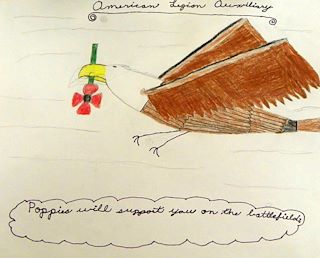 American Legion Auxiliary
Poppies will support you on the battlefields